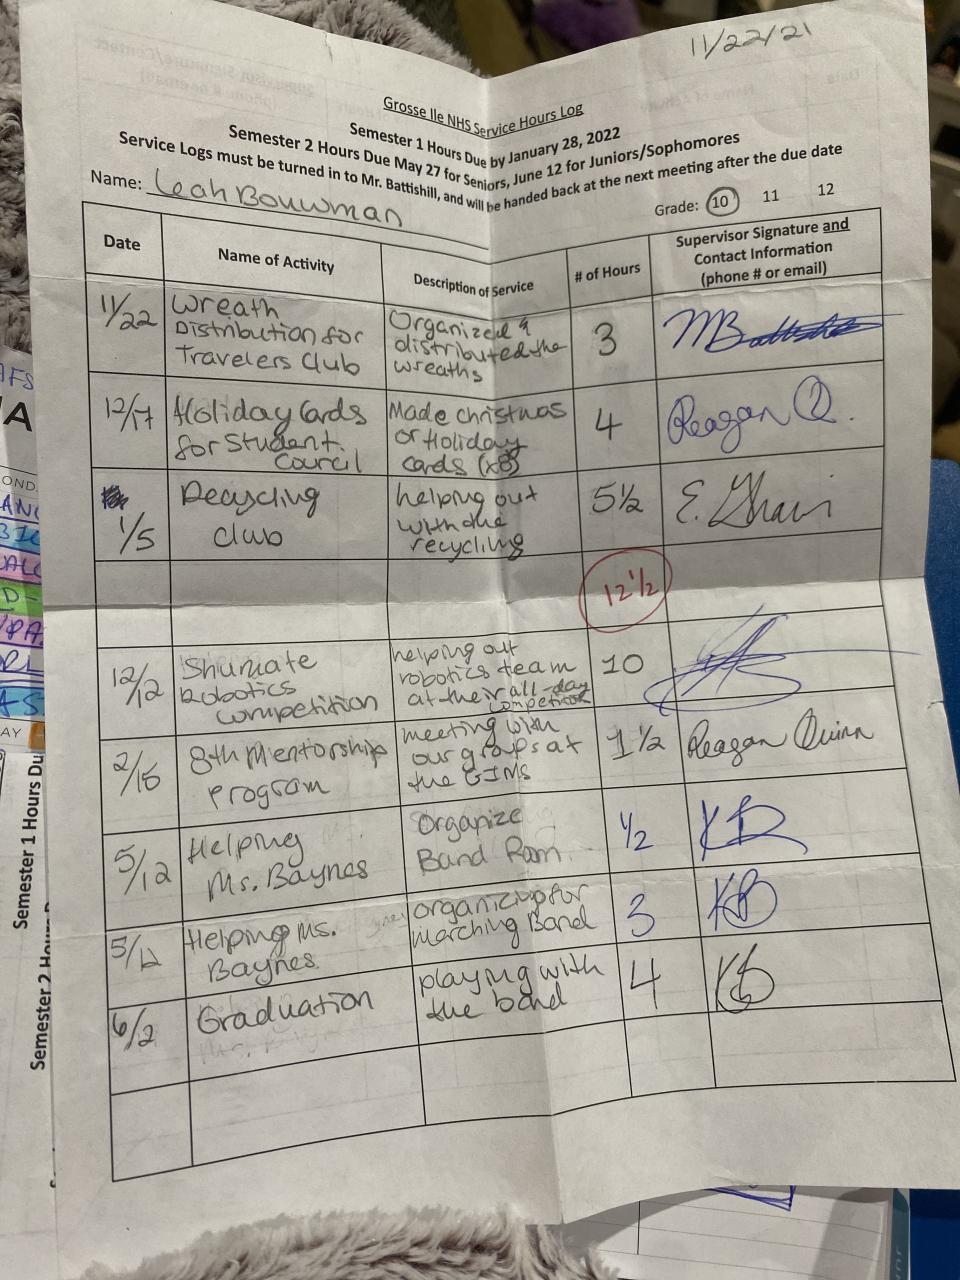 11/22/21
Grosse Ile NHS Service Hours Log
Semester 1 Hours Due by January 28, 2022
Semester 2 Hours Due May 27 for Seniors, June 12 for Juniors/Sophomores
Service Logs must be turned in to Mr. Battishill, and will be handed back at the next meeting after the due date
Name: Leah Bouwman
Grade: 10 11 12
Date
Name of Activity
Description of Service
# of Hours
Supervisor Signature and
Contact Information
(phone # or email)
11/22
Wreath
Distribution for
Travelers Club
Organized &
distributed the
wreaths
3
12/17
Holiday Cards
for Student
Council
Made christmas
or Holiday
cards (x8)
4
Reagan Q.
1/5
Recycling
club
helping out
with the
recycling
5 1/2
E.
12 1/2
12/12
Shumate
Robotics
competition
helping out
robotics team
at their all-day
competition
10
2/15
8th Mentorship
program
meeting with
our groups at
the GIMS
1 1/2
Reagan Quinn
5/12
Helping
Ms. Baynes
Organize
Band Room
1/2
KB
5/12
Helping Ms.
Baynes
organizing for
Marching Band
3
KB
6/2
Graduation
playing with
the band
4
KB
Semester 1 Hours Du
Semester 2 Hours D